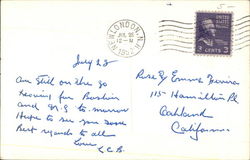 LONDON, N.H.
JUL 28
12-M
3 CENTS 3
July 28
Am still on the go
leaving for Boston
and N.Y. to-morrow
Hope to see you soon
Best regards to all
Love
C.B.
Rose & Emma
115 Hamilton Pl
Oakland
California